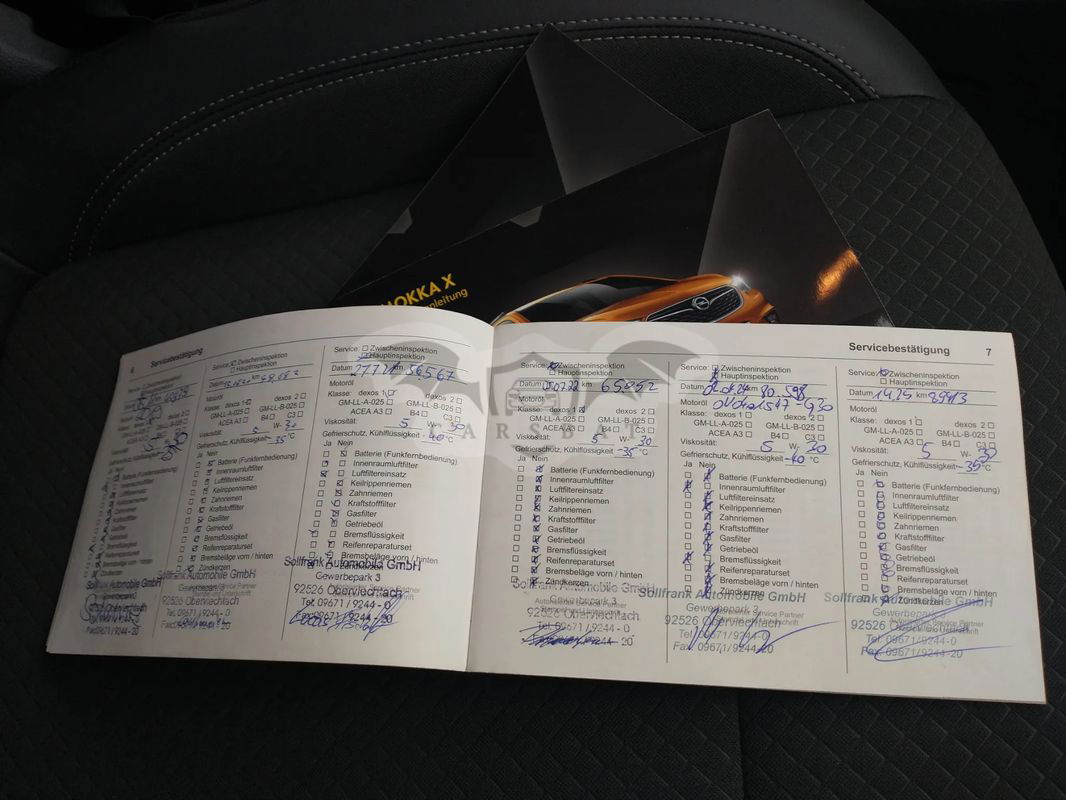 MOKKA X
CARSBAT
6 Servicebestätigung
Service: Zwischeninspektion
Hauptinspektion
Datum km
Viskosität: W-
Gefrierschutz, Kühlflüssigkeit
Ja Nein
Batterie (Funkfernbedienung)
Innenraumluftfilter
Luftfiltereinsatz
Keilrippenriemen
Zahnriemen
Kraftstofffilter
Gasfilter
Getriebeöl
Bremsflüssigkeit
Reifenreparaturset
Zündkerzen
Sollfrank Automobile GmbH
92526 Oberviechtach
Fax:09671/9244-20
Service: Zwischeninspektion
Hauptinspektion
Datum km
Motoröl
Klasse: dexos 1 dexos 2
GM-LL-A-025 GM-LL-B-025
ACEA A3 B4 C3
Viskosität: 5 W- 30
Gefrierschutz, Kühlflüssigkeit -35 °C
Ja Nein
Batterie (Funkfernbedienung)
Innenraumluftfilter
Luftfiltereinsatz
Keilrippenriemen
Zahnriemen
Kraftstofffilter
Gasfilter
Getriebeöl
Bremsflüssigkeit
Reifenreparaturset
Bremsbeläge vorn / hinten
Zündkerzen
Sollfrank Automobile GmbH
Gewerbepark 3
92526 Oberviechtach
Tel. 09671/9244-0
Service: Zwischeninspektion
Hauptinspektion
Datum 27.7.21 km 56567
Motoröl
Klasse: dexos 1 dexos 2
GM-LL-A-025 GM-LL-B-025
ACEA A3 B4 C3
Viskosität: 5 W- 30
Gefrierschutz, Kühlflüssigkeit -40 °C
Ja Nein
Batterie (Funkfernbedienung)
Innenraumluftfilter
Luftfiltereinsatz
Keilrippenriemen
Zahnriemen
Kraftstofffilter
Gasfilter
Getriebeöl
Bremsflüssigkeit
Reifenreparaturset
Bremsbeläge vorn / hinten
Zündkerzen
Sollfrank Automobile GmbH
Gewerbepark 3
92526 Oberviechtach
Tel. 09671/9244-0
Servicebestätigung 7
Service: Zwischeninspektion
Hauptinspektion
Datum km 65052
Motoröl
Klasse: dexos 1 dexos 2
GM-LL-A-025 GM-LL-B-025
ACEA A3 B4 C3
Viskosität: 5 W- 30
Gefrierschutz, Kühlflüssigkeit -35 °C
Ja Nein
Batterie (Funkfernbedienung)
Innenraumluftfilter
Luftfiltereinsatz
Keilrippenriemen
Zahnriemen
Kraftstofffilter
Gasfilter
Getriebeöl
Bremsflüssigkeit
Reifenreparaturset
Bremsbeläge vorn / hinten
Zündkerzen
Sollfrank Automobile GmbH
Gewerbepark 3
92526 Oberviechtach
Tel. 09671/9244-0
Service: Zwischeninspektion
Hauptinspektion
Datum km 80.598
Motoröl
Klasse: dexos 1 dexos 2
GM-LL-A-025 GM-LL-B-025
ACEA A3 B4 C3
Viskosität: 5 W- 30
Gefrierschutz, Kühlflüssigkeit -40 °C
Ja Nein
Batterie (Funkfernbedienung)
Innenraumluftfilter
Luftfiltereinsatz
Keilrippenriemen
Zahnriemen
Kraftstofffilter
Gasfilter
Getriebeöl
Bremsflüssigkeit
Reifenreparaturset
Bremsbeläge vorn / hinten
Zündkerzen
Sollfrank Automobile GmbH
Gewerbepark 3
92526 Oberviechtach
Tel. 09671/9244-0
Fax. 09671/9244-20
Service: Zwischeninspektion
Hauptinspektion
Datum km 89913
Motoröl
Klasse: dexos 1 dexos 2
GM-LL-A-025 GM-LL-B-025
ACEA A3 B4 C3
Viskosität: 5 W- 30
Gefrierschutz, Kühlflüssigkeit -35 °C
Ja Nein
Batterie (Funkfernbedienung)
Innenraumluftfilter
Luftfiltereinsatz
Keilrippenriemen
Zahnriemen
Kraftstofffilter
Gasfilter
Getriebeöl
Bremsflüssigkeit
Reifenreparaturset
Bremsbeläge vorn / hinten
Zündkerzen
Sollfrank Automobile GmbH
Gewerbepark 3
92526 Oberviechtach
Tel. 09671/9244-0
Fax. 09671/9244-20